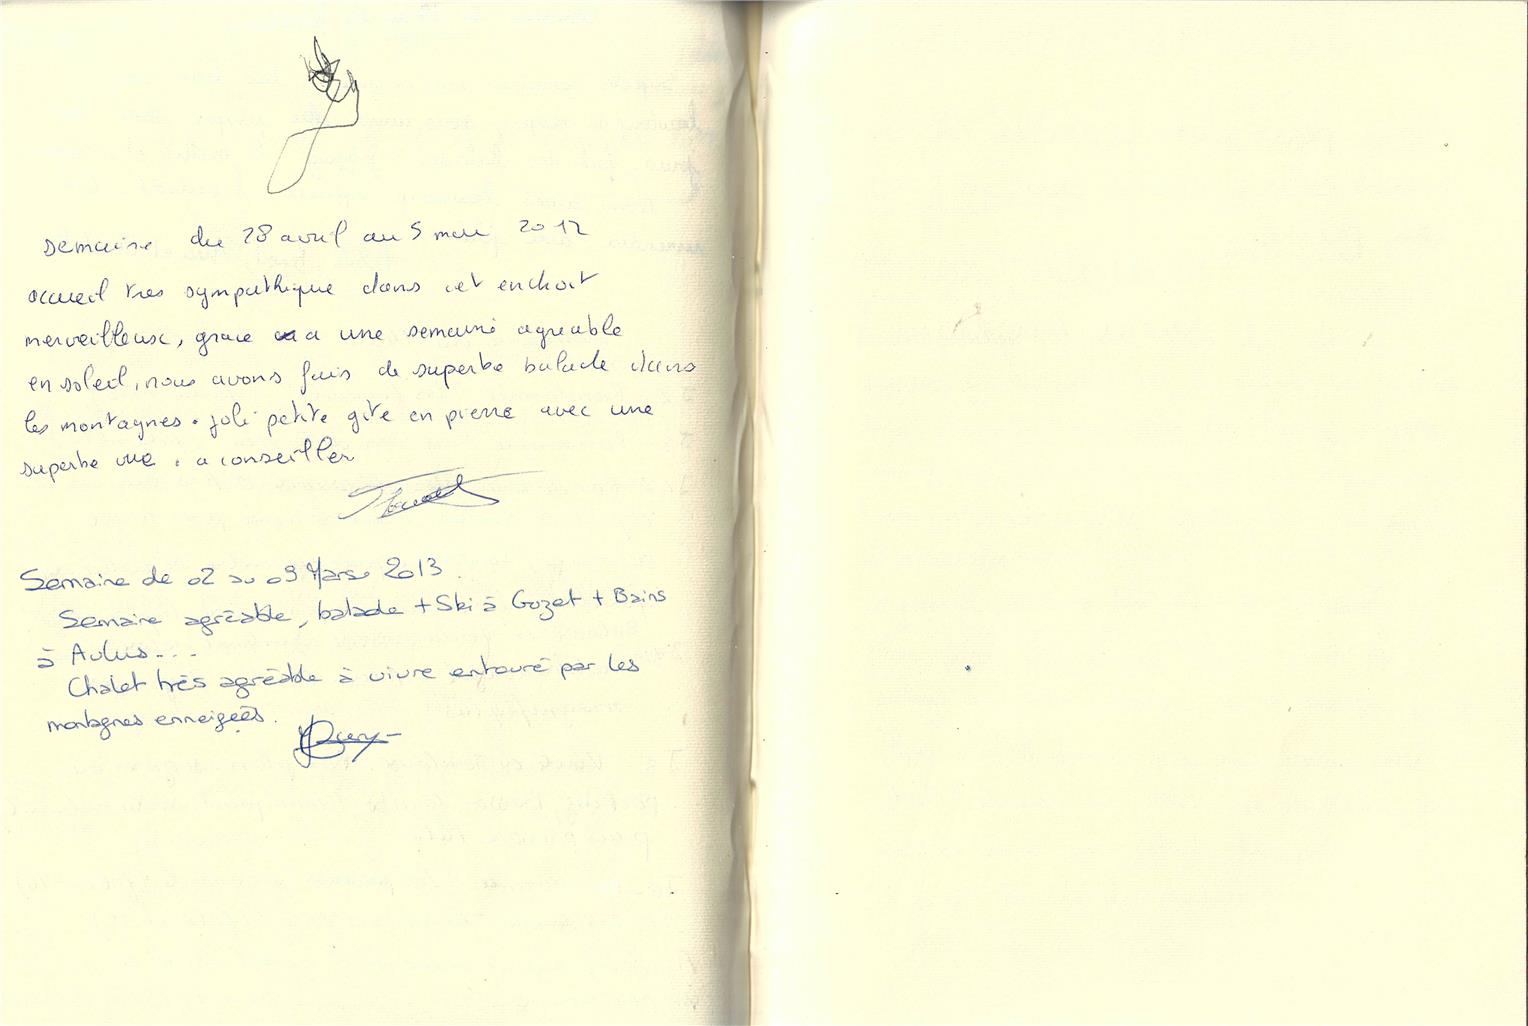 semaine du 28 avril au 5 mai 2012
accueil tres sympathique dans cet enchoit
merveilleux, grace a une semaine agreable
en soleil, nous avons fais de superbe balade dans
les montagnes. joli petite gite en pierre avec une
superbe vue. a conseiller
Semaine de 02 au 09 Mars 2013.
Semaine agréable, balade + Ski à Guzet + Bains
à Aulus...
Chalet très agréable à vivre entouré par les
montagnes enneigées.